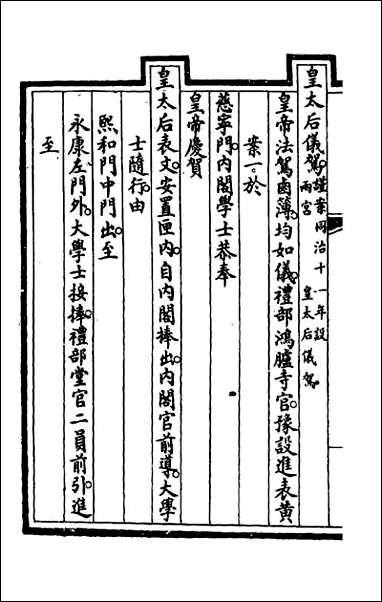 皇太后儀駕。謹案同治十一年設
兩宮　皇太后儀駕
皇帝法駕鹵簿。均如儀。禮部鴻臚寺官。豫設進表黃
案一。於
慈寧門。內閣學士恭奉
皇帝慶賀
皇太后表文。安置匣內。自內閣捧出。內閣官前導。大學
士隨行。由
熙和門中門出。至
永康左門外。大學士接捧。禮部堂官二員前引進
至